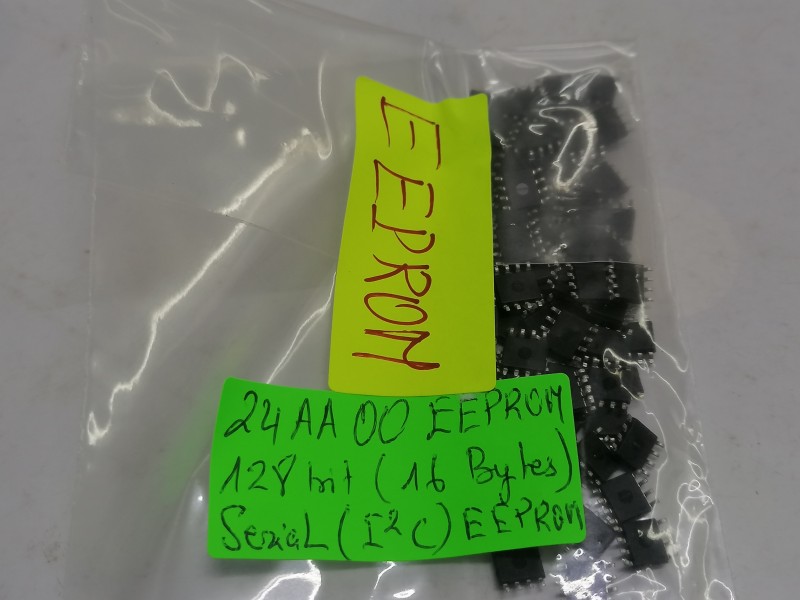 EEPROM
24AA00 EEPROM
128 bit (16 Bytes)
Serial (I²C) EEPROM